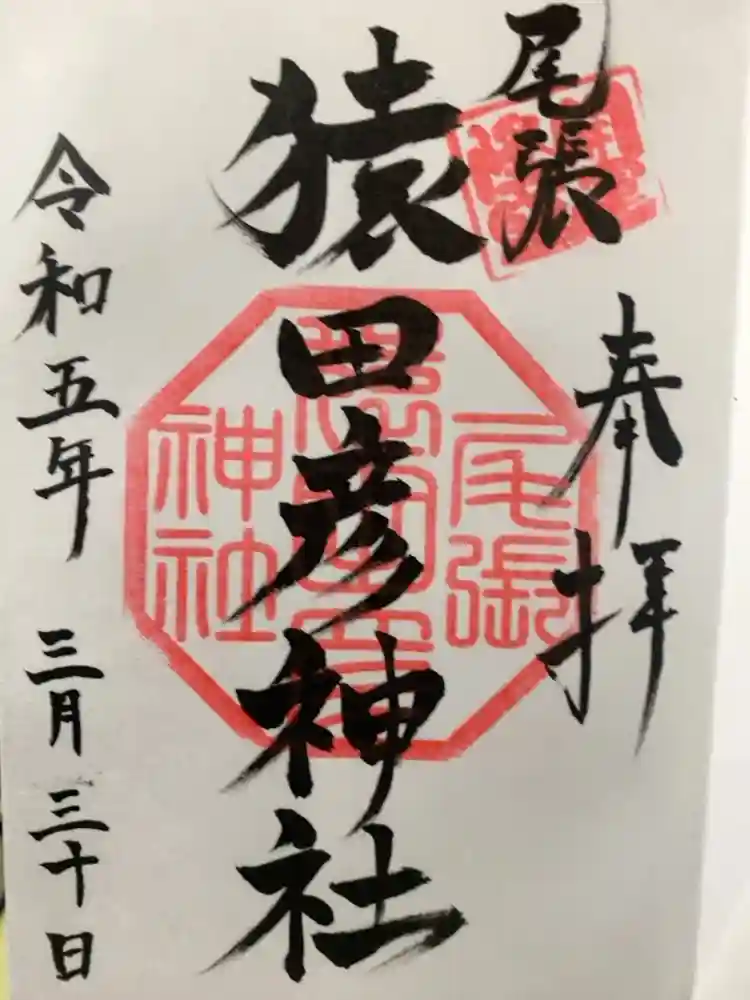 尾張
奉拝
猿田彦神社
令和五年 三月三十日
尾張
神社